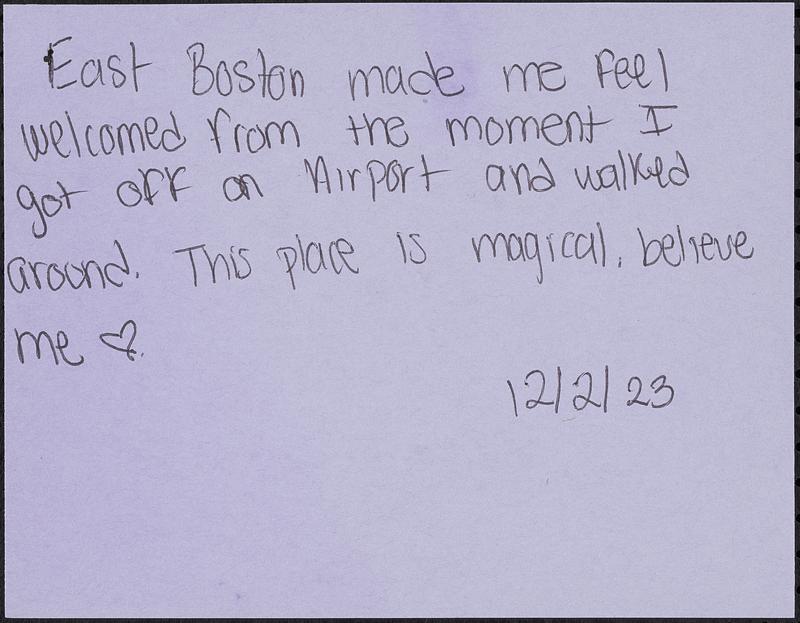 East Boston made me feel
welcomed from the moment I
got off on Airport and walked
around. This place is magical, believe
me ♡.
12/2/23